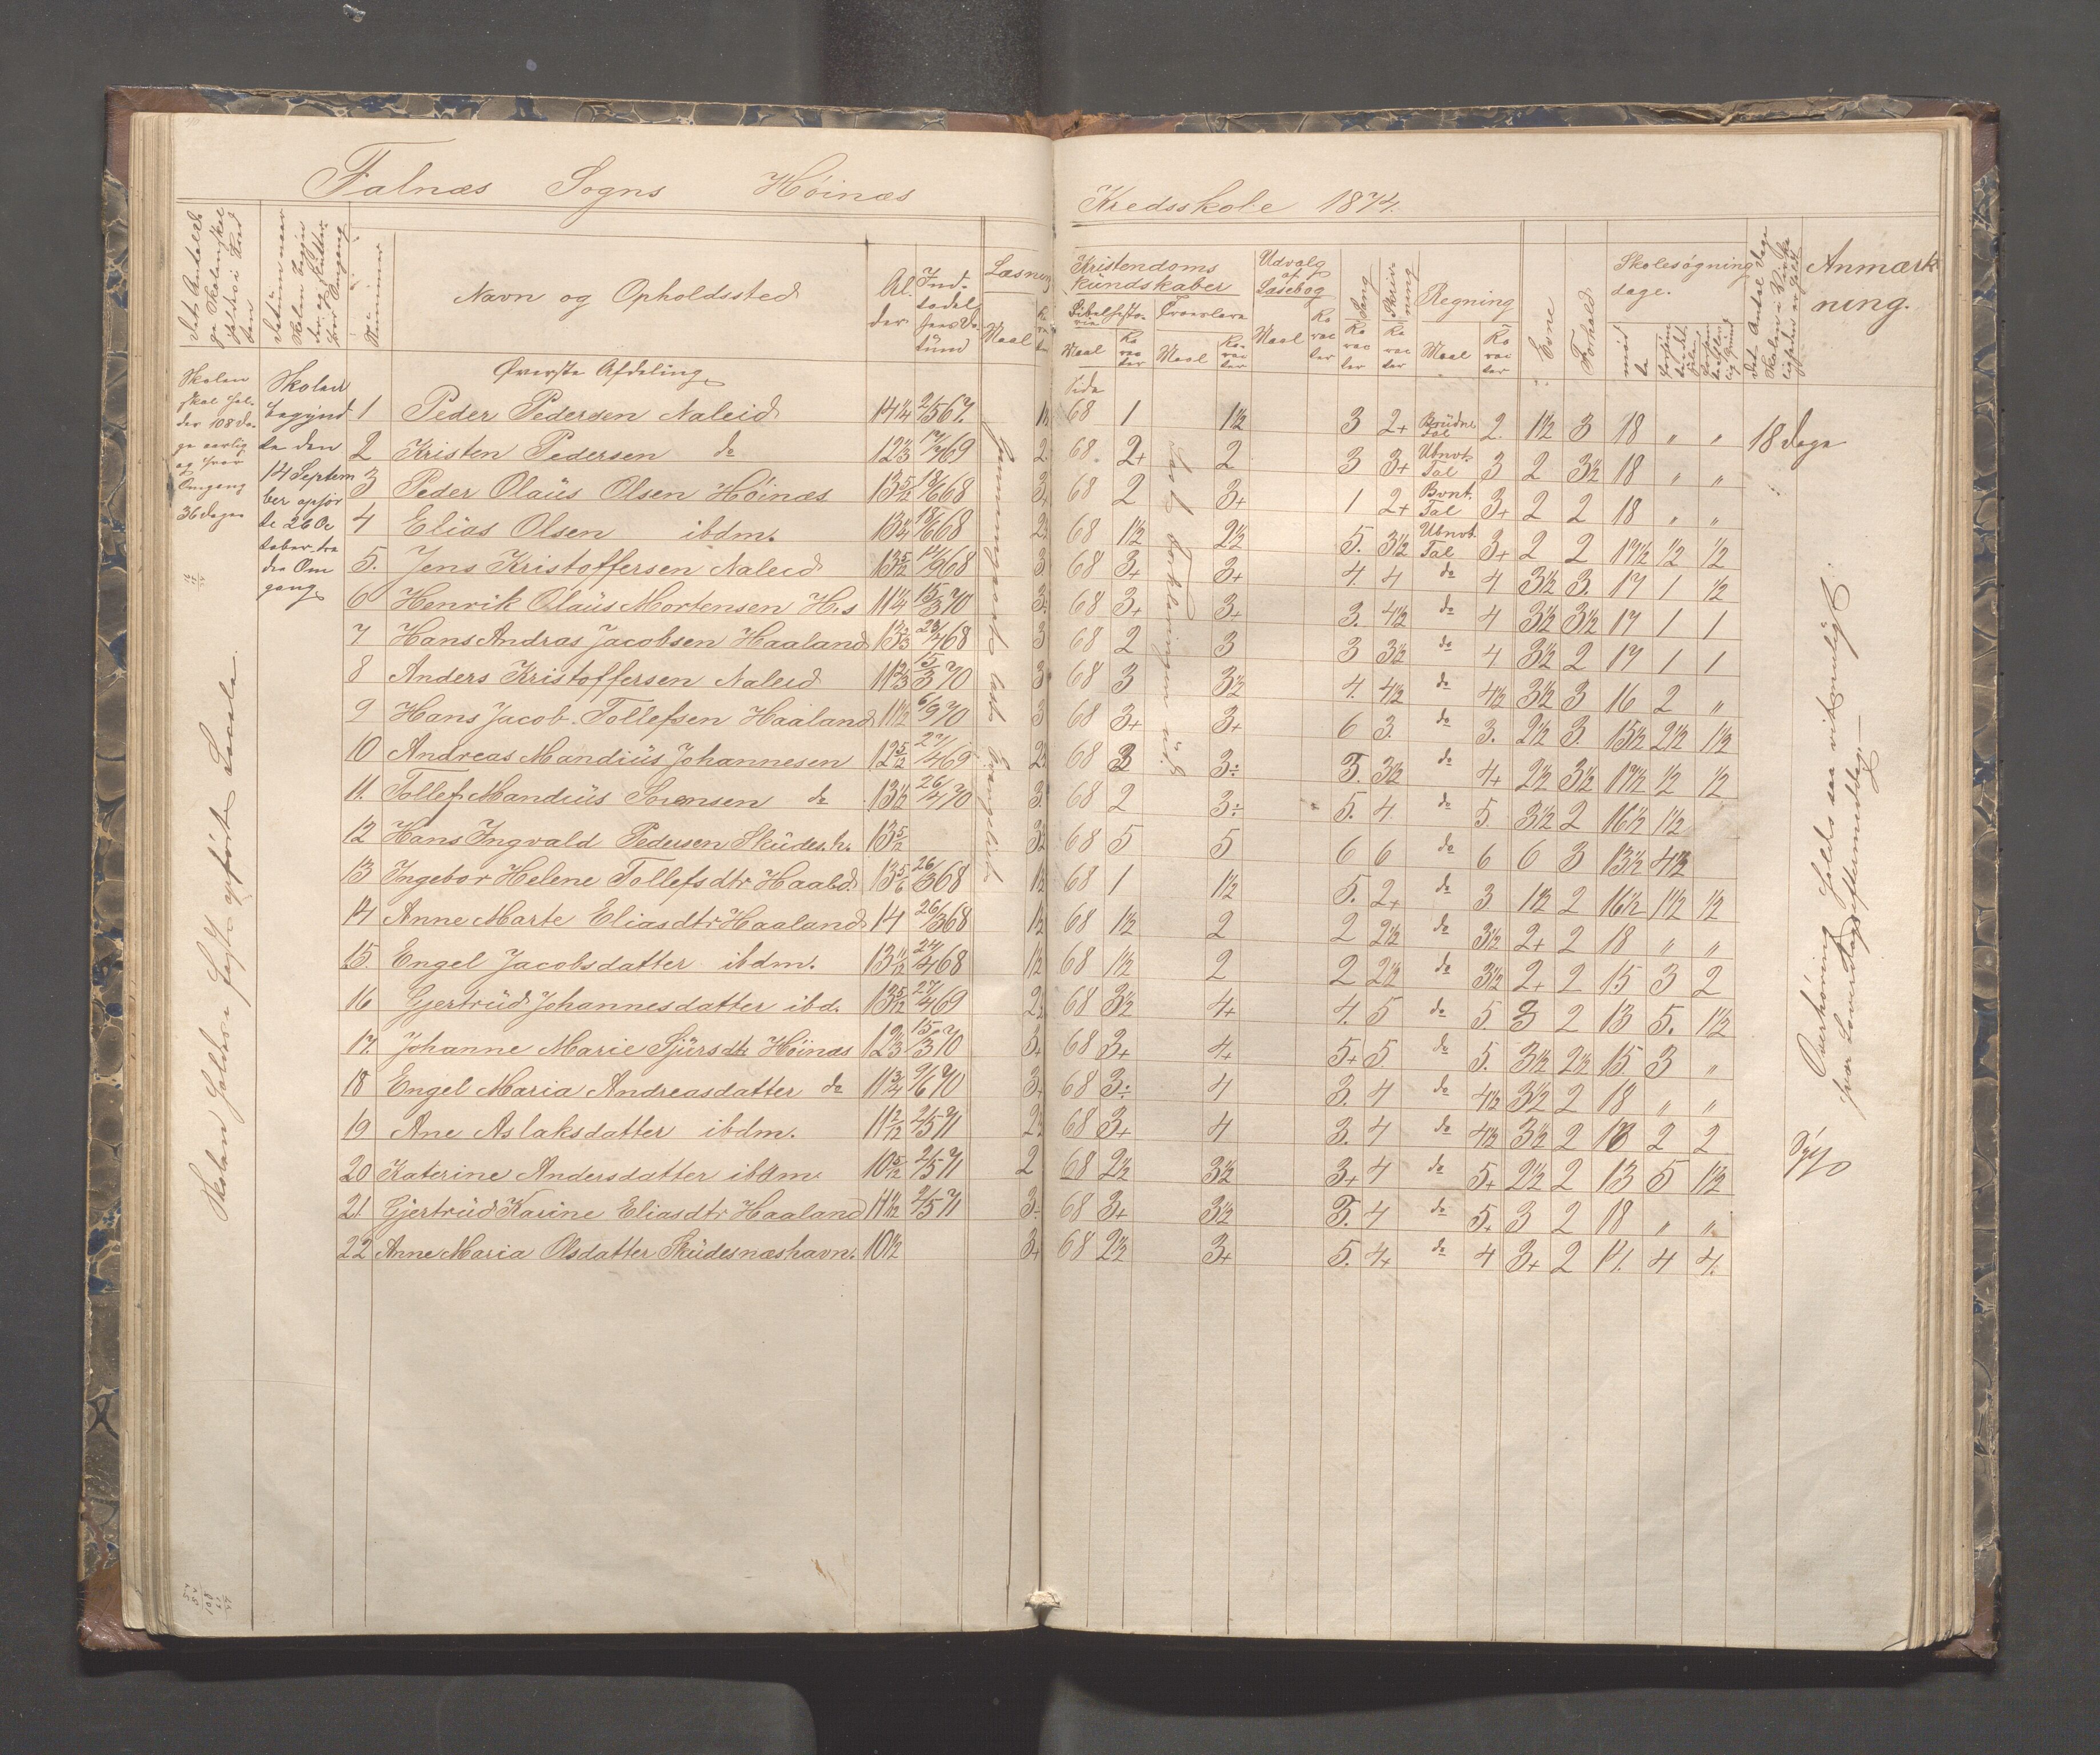 Falnæs Sogns Höinæs Kredsskole 1874.
Navn og Opholdssted
Al-
der.
Ind-
tædel
sens Da-
tüm
Læsning
Maal
Nümmer
Kristendoms
kündskaber
Bibelhisto-
rie
Troeslære
Maal
Ka
rac
ter
Maal
Ka-
rac
ter
Udvalg
af
Læsebog
Maal
Ka
rac
ter
Sang
Ka
rac
ter
Skriv-
ning
Ka
rac
ter
Regning
Maal
Ka
rac
ter
Evne
Forhold
Skolesögning
dage.
mød
te
Anmærk
ning.
Øverste Afdeling
Side
Skolen
skal hol-
des 108 Da-
ge aarlig
og hver
Omgang
36 dage
Skolen
begynd
te den
14 Septem
ber ophør
te 26 Oc
tober-tre
die Om
gang
1 Peder Pedersen Naleid 14 1/4 2/5 67. 68 1 1½ 3 2+ Brüdne Tal 2. 1½ 3 18 " " 18 dage
2 Kristen Pedersen do 12 1/3 69 2 68. 2+ 2 3 3+ Ubnvt Tal 3 2 3½ 18 " "
3 Peder Olaüs Olsen Höinæs 13 5/12 68 68 2 3+ 1 2+ Bvnt. Tal 3+ 2 2 18 " "
4 Elias Olsen ibdm. 13 1/4 68 68 1½ 2½ 5. 3½ Ubnvt. Tal 3+ 2 2 17½ ½ ½
5. Jens Kristoffersen Naleid 13 5/12 68 3 68 3+ 3+ 4. 4 do 4 3½ 3. 17 1 ½
6 Henrik Olaüs Mortensen H.s 11 1/4 15/3 70 68 3+ 3+ 3. 4½ do 4 3½ 3½ 17 1 1
7 Hans Andras Jacobsen Haaland 13 2/3 28/4 68 3 68 2 3 3 3½ do 4 3½ 2 17 1 1
8 Anders Kristoffersen Naleid 11 2/3 15/3 70 3 68 3 3½ 4. 4½ do 4½ 3½ 3 16 2 "
9 Hans Jacob Tollefsen Haaland 11½ 6/9 70 3 68 3+ 3+ 6 3. do 3. 2½ 3. 15½ 2½ 1½
10 Andreas Mandiüs Johannesen 12 5/12 27/4 69 68 3 3÷ 3. 3½ do 4+ 2½ 3½ 17½ ½ ½
11. Tollef Mandiüs Sorensen do 13½ 26/4 70 3. 68 2 3÷ 5. 4. do 5. 3½ 2 16½ 1½
12 Hans Ingvald Pedersen Sküdesh. 13 5/12 68 5 5 6 6 do 6 6 3 13½ 4½
13 Ingebor Helene Tollefsdtr Haald 13 5/6 26/3 68 1½ 68 1 1½ 5. 2+ do 3 1½ 2 16½ 1½ ½
14 Anne Marte Eliasdtr Haaland 14 26/3 68 1½ 68 1½ 2 2 2½ do 3½ 2+ 2 18 " "
15. Engel Jacobsdatter ibdm. 13 1/12 24/4 68 1½ 68 1½ 2 2 2½ do 3½ 2+ 2 15 3 2
16 Gjertrüd Johannesdatter ibd. 13 5/12 27/4 69 68 3½ 4+ 4. 5 do 5. 3 2 13 5. 1½
17. Johanne Marie Sjürsdtr Höinæs 12 1/3 15/3 70 3+ 68 3+ 4+ 5+ 5. do 5. 3½ 2½ 15 3 "
18 Engel Maria Andreasdatter do 11 3/4 9/6 70 3+ 68 3÷ 4 3. 4 do 4½ 3½ 2 18 " "
19 Ane Aslaksdatter ibdm. 11 2/12 2/5 71 68 3+ 4 3. 4 do 4½ 3½ 2 2 2
20 Katerine Andersdatter ibdm. 10 5/12 2/5 71 2 68 2½ 3½ 3+ 4 do 5+ 2½ 2 13 5 1½
21 Gjertrüd Karine Eliasdtr Haaland 11 1/12 2/5 71 68 3+ 3½ 3. 4 do 5+ 3 2 18 " "
22 Anne Maria Olsdatter Sküdesnæshavn. 10½ 3+ 68 2½ 3+ 5. 4+ do 4 3+ 2 4 4.
Skolen holdes i Leiet opförte Locale.
Gjennemgaaet
Overhöring holdes saa vidt muligt
hver Løverdagseftermiddag.